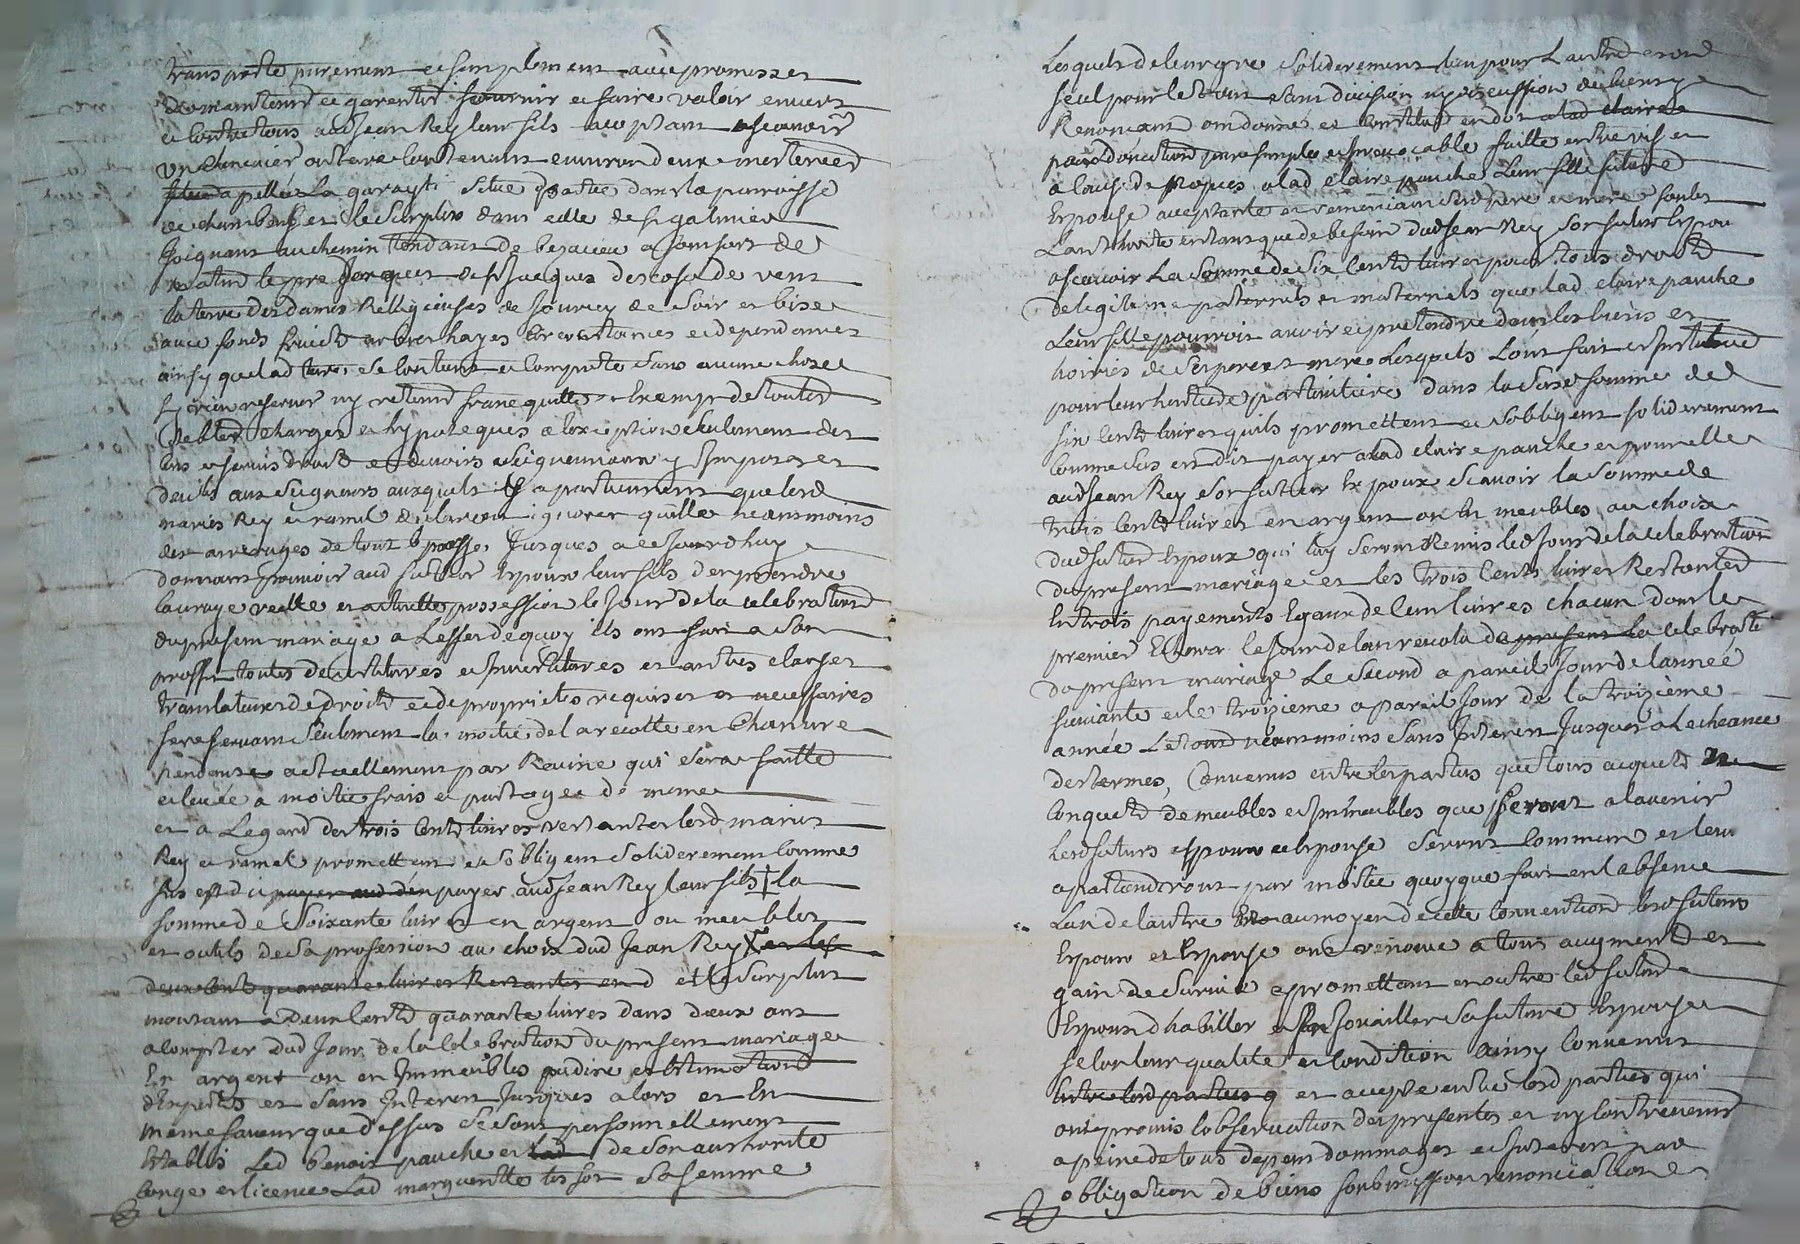 transporte purement et simplement avec promesses
de maintenir et garentir fournir et faire valoir envers
et contre tous aud Jean Rey leur fils acceptant ascavoir
un chenevier ou terre contenant environ deux
appellée La garaysti située partie dans la parroisse
de chambeuf et le surplus dans celle de st galmier
Joignant au chemin tendant de a de
matin le pré de Jacques descos de vent
la terre des dames Relligieuses de Jourcey de soir et bise
avec fonds fruicts arbres hayes circonstances et dependances
ainsy que lad terre se contient et comporte sans aucune chose
y rien reserver ny retenir franc quitte et Exempt de toutes
debtes charges et hypoteques a lexception seulement des
cens et servis droits et devoirs seigneuriaux y Imposes et
deubs aux seigneurs auxquels ils apartiennent que lesd
mariés Rey et ramel declarent ignorer quitte neantmoins
des arrerages de tout le passé Jusques a ce Jourdhuy
donnant pouvoir aud futeur Epoux leur fils d'en prendre
la vraye reelle et actuelle possession le Jour de la celebration
du present mariage a Leffet de quoy ils ont fait a son
proffit toutes devestitures et Investitures et autres clauses
translatives de droits et de proprietes requises et necessaires
se reservant seulement la moitié de la recolte en Chanvre
pendante actuellement par Racine qui sera faitte
et levée a moitié frais et partagée de meme
et a Legard des trois cents livres restantes lesd mariés
Rey et ramel promettent et s'obligent soliderement comme
sus est dit payer aud d'en payer aud Jean Rey leur fils † la
somme de soixante livres en argent ou meubles
et outils de sa profession au choix dud Jean Rey X et les
deux cents quarante livres Restantes en d et le surplus
montant a deux cents quarante livres dans deux ans
a compter dud Jour de la celebration du present mariage
En argent ou en Immeubles a dire et estimation
d'Experts et sans Interest Jusques alors et En
meme faveur que dessus se sont personnellement
Etablis Led benoit pauche et lad de son authorité
congé et licence Lad margueritte tissot sa femme
Lesquels de leur gré soliderement l'un pour L'autre et un
seul pour le tout sans division ny discussion de biens y
Renonçant ont donné et constitué en dot a lad claire
par donation pure simple et irrevocable faitte entre vifs et
a cause de noces a lad claire pauche Leur fille future
Epouse acceptante et remerciant sesd pere et mere sous
L'authorité en tant que de besoin dud Jean Rey son futur Epou
ascavoir La somme de six cents livres pour tous droits
de legitime paternels et maternels que lad claire pauche
Leur fille pourroit avoir et pretendre dans les biens et
hoiries de ses pere et mere Lesquels L'ont fait et Instituée
pour leur heritiere particuliere dans la susd somme de
six cents livres qu'ils promettent et s'obligent soliderement
comme sus est dit payer a lad claire pauche et pour elle
aud Jean Rey son futeur Epoux scavoir la somme de
trois cents livres en argent ou en meubles au choix
dud futur Epoux qui luy seront Remis led Jour de la celebration
du present mariage et les trois cents livres Restantes
En trois payements Egaux de cent livres chacun dont le
premier Echera le Jour de l'an revolu du present la celebratio
du present mariage Le second a pareil Jour de l'année
suivante et le troizieme a pareil Jour de la troizieme
année Le tout neantmoins sans Interest Jusques a Lecheance
des termes, Convenus entre les parties que tous acquets
conquets de meubles et Immeubles que feront a lavenir
lesd futurs Epoux et Epouse seront communs et leur
apartiendront par moitié quoyque fait en l'absence
L'un de lautre au moyen de cette convention lesd futurs
Epoux et Epouse ont renoncé a tous augments et
gain de survie promettant en outre led futur
Epoux d'habiller et Enjoüailler sa future Epouse
selon leur qualité et condition Ainsy convenu
Entre lesd parties q et accepté entre lesd parties qui
ont promis l'observation des presentes et ny contrevenir
a peine de tous depens dommages et Interest par
obligation de biens soubmission renonciation